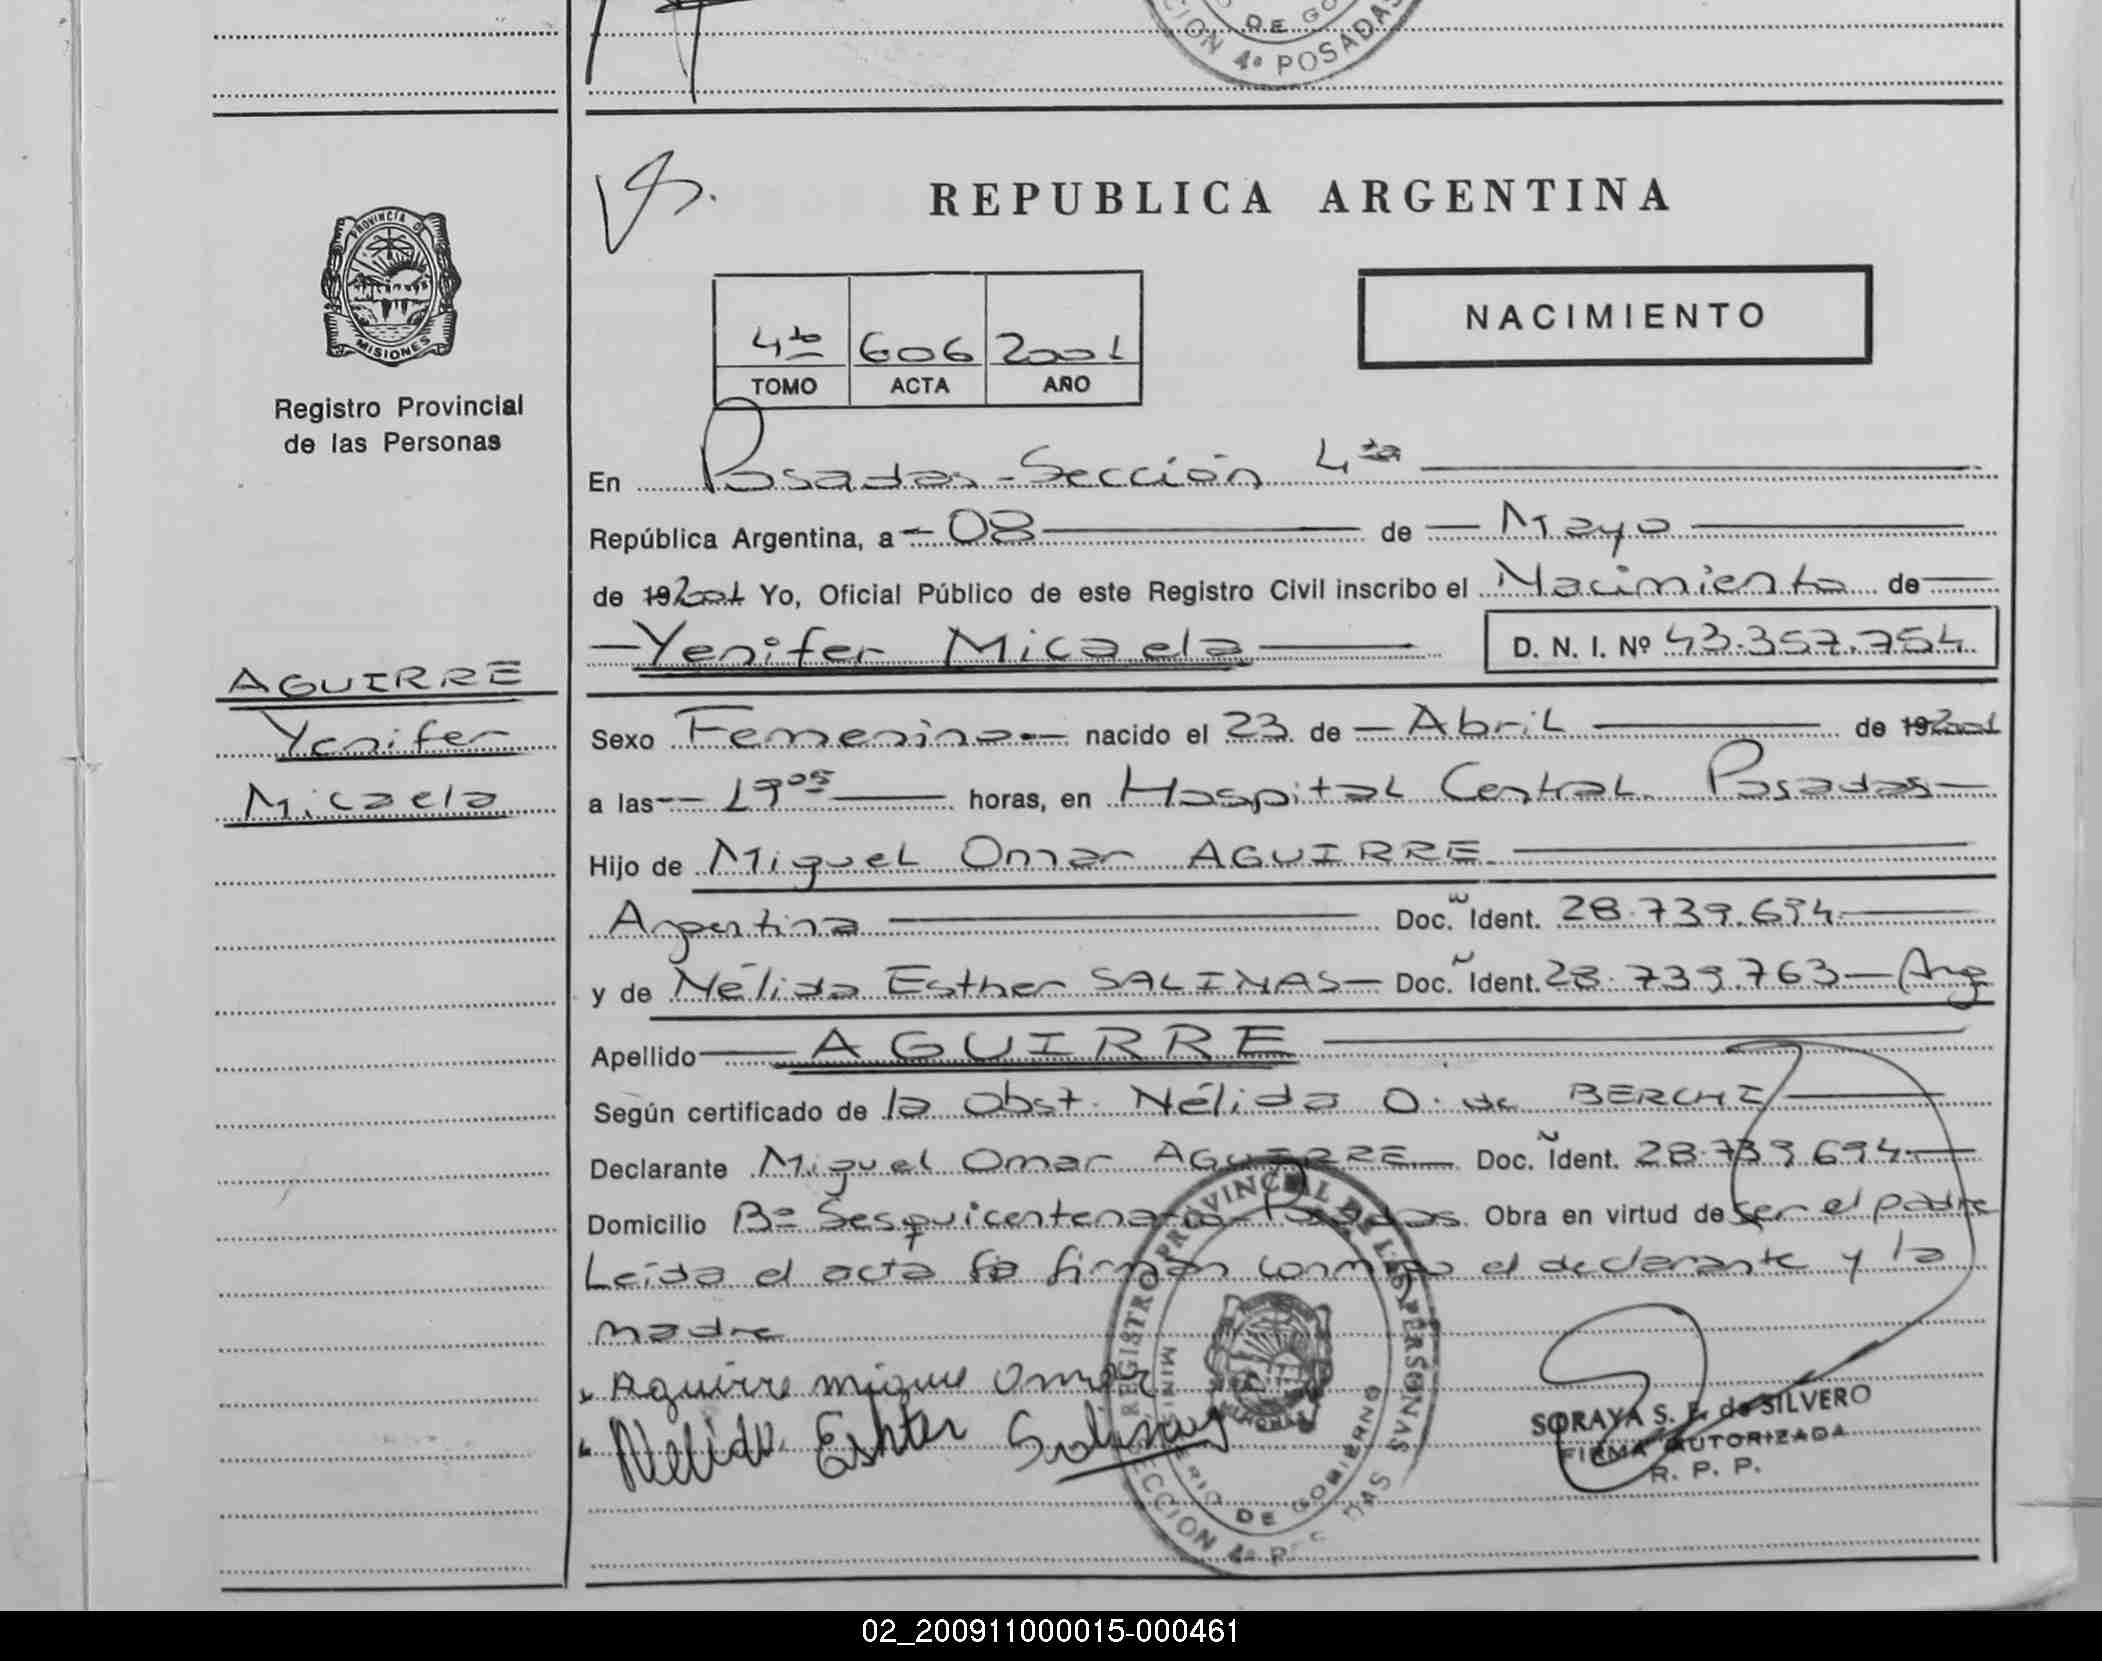 DE GO
CION 4ª POSADAS
REPUBLICA ARGENTINA
PROVINCIA DE
MISIONES
Registro Provincial
de las Personas
NACIMIENTO
4to 606 2001
TOMO ACTA AÑO
En Posadas - Sección 4ta
República Argentina, a - 08 de - Mayo
de 192001 Yo, Oficial Público de este Registro Civil inscribo el Nacimiento de
- Yenifer Micaela D. N. I. Nº 43.357.754
AGUIRRE
Yenifer
Micaela
Sexo Femenino - nacido el 23 de - Abril de 192001
a las - 19 05 horas, en Hospital Central Posadas -
Hijo de Miguel Omar AGUIRRE
Argentina Doc. Ident. 28.739.694
y de Nélida Esther SALINAS - Doc. Ident. 28.739.763 - Arg
Apellido AGUIRRE
Según certificado de la Obst. Nélida O. de BERCHI
Declarante Miguel Omar AGUIRRE Doc. Ident. 28.739.694
Domicilio Bº Sesquicentenario - Posadas Obra en virtud de ser el padre
Leída el acta la firman conmigo el declarante y la
madre
Aguirre migue Omar
Nelida Eshter Salinas
REGISTRO PROVINCIAL DE LAS PERSONAS
MINISTERIO DE GOBIERNO
SECCION 4ª POSADAS
MISIONES
SORAYA S. F. de SILVERO
FIRMA AUTORIZADA
R. P. P.
02_200911000015-000461